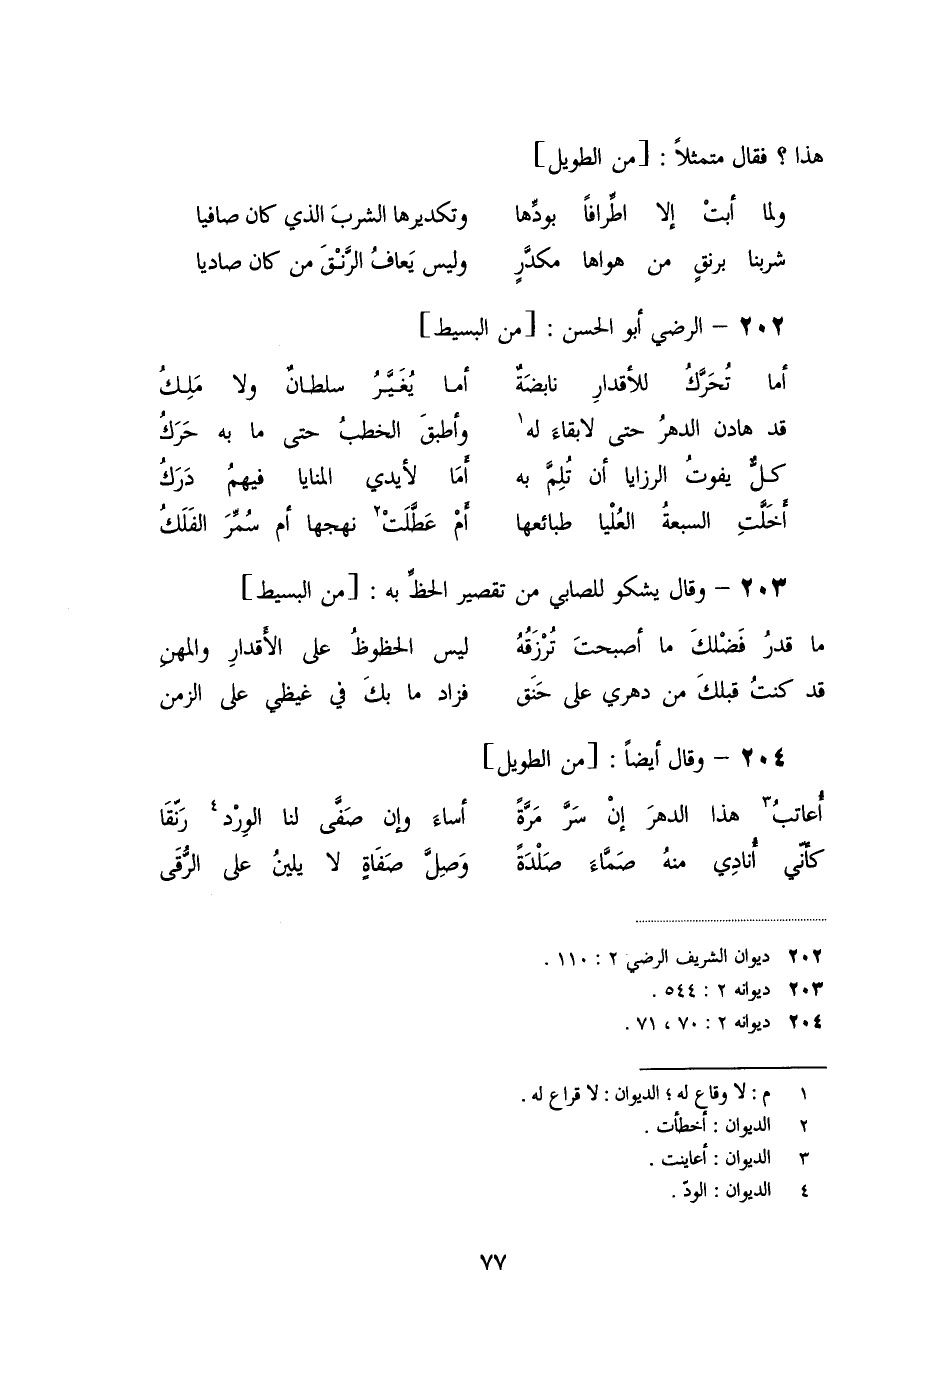 هذا ؟ فقال متمثلاً : [ من الطويل ]
ولما أبتْ إلا اطِّرافاً بودِّها وتكديرها الشربَ الذي كان صافيا
شربنا برنقٍ من هواها مكدَّرٍ وليس يَعافُ الرَّنْقَ من كان صاديا
٢٠٢ – الرضي أبو الحسن : [ من البسيط ]
أما تُحَرَّكُ للأقدارِ نابضَةٌ أما يُغَيَّرُ سلطانٌ ولا مَلِكُ
قد هادن الدهرُ حتى لابقاءَ له١ وأطبقَ الخطبُ حتى ما به حَرَكُ
كلٌّ يفوتُ الرزايا أن تُلِمَّ به أَمَا لأيدي المنايا فيهمُ دَرَكُ
أَخَلَّتِ السبعةُ العُلْيا طبائعها أَمْ عَطَّلَتْ٢ نهجها أم سُمِّرَ الفَلَكُ
٢٠٣ – وقال يشكو للصابي من تقصير الحظِّ به : [ من البسيط ]
ما قدرُ فَضْلكَ ما أصبحتَ تُرْزَقُهُ ليس الحظوظُ على الأَقدارِ والمهنِ
قد كنتُ قبلكَ من دهري على حَنَق فزاد ما بكَ في غيظي على الزمن
٢٠٤ – وقال أيضاً : [ من الطويل ]
أُعاتبُ٣ هذا الدهرَ إنْ سَرَّ مَرَّةً أساءَ وإن صَفَّى لنا الوِرْد٤ رَنَّقَا
كأنّي أُنادِي منهُ صَمَّاءَ صَلْدَةً وَصِلَّ صَفَاةٍ لا يلينُ على الرُّقَى
٢٠٢ ديوان الشريف الرضي ٢ : ١١٠ .
٢٠٣ ديوانه ٢ : ٥٤٤ .
٢٠٤ ديوانه ٢ : ٧٠ ، ٧١ .
١ م : لا وقاع له ؛ الديوان : لا قراع له .
٢ الديوان : أخطأت .
٣ الديوان : أعاينت .
٤ الديوان : الودّ .
٧٧